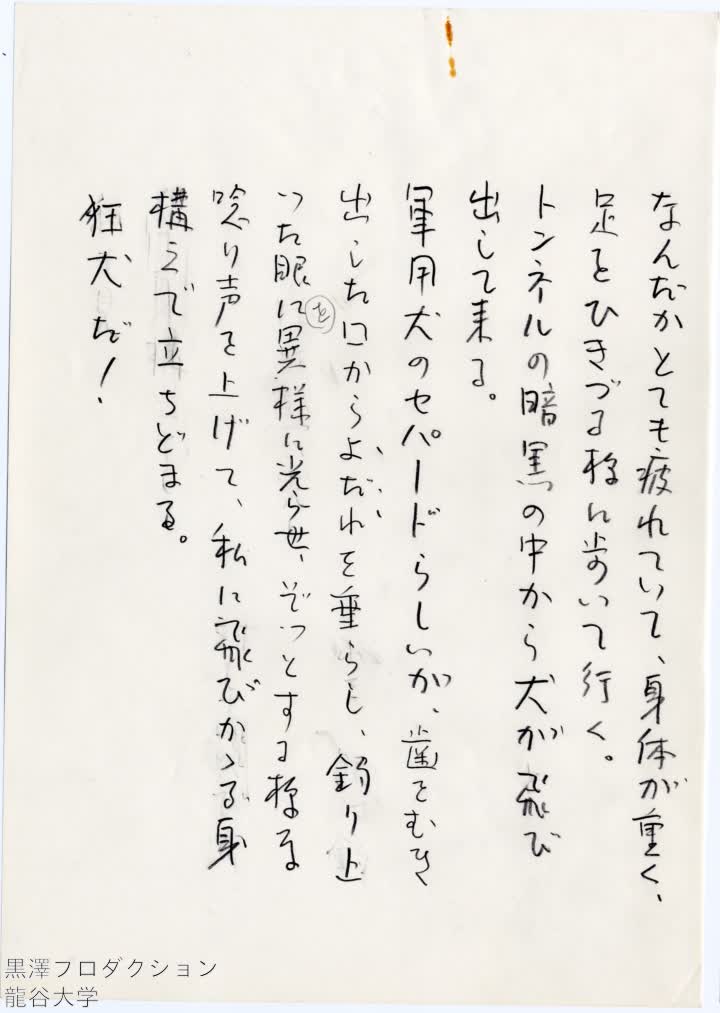 なんだかとても疲れていて、身体が重く、
足をひきづる様に歩いて行く。
トンネルの暗黒の中から犬が飛び
出して来る。
軍用犬のセパードらしいが、歯をむき
出した口からよだれを垂らし、釣り上
った眼に異様に光らせ、ぞっとする様な
を
唸り声を上げて、私に飛びかゝる身
構えで立ちどまる。
狂犬だ！
黒澤プロダクション
龍谷大学